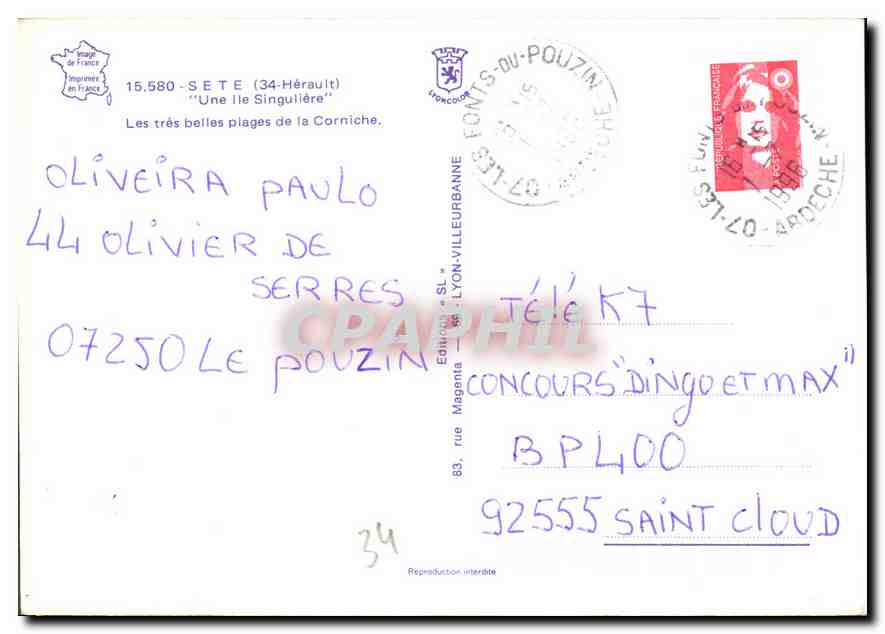 Image
de France
Imprimée
en France
15.580 - SETE (34-Hérault)
"Une Ile Singulière"
Les très belles plages de la Corniche.
LYONCOLOR
07-LES FONTS-DU-POUZIN
ARDECHE
REPUBLIQUE FRANÇAISE
LA POSTE
1996
07-LES FONTS
ARDECHE
OLIVEIRA PAULO
44 OLIVIER DE
SERRES
07250 LE POUZIN
Editions "SL"
83, rue Magenta — 69 - LYON-VILLEURBANNE
CPAPHIL
Télé K7
CONCOURS "DINGO ET MAX"
BP400
92555 SAINT CLOUD
34
Reproduction interdite